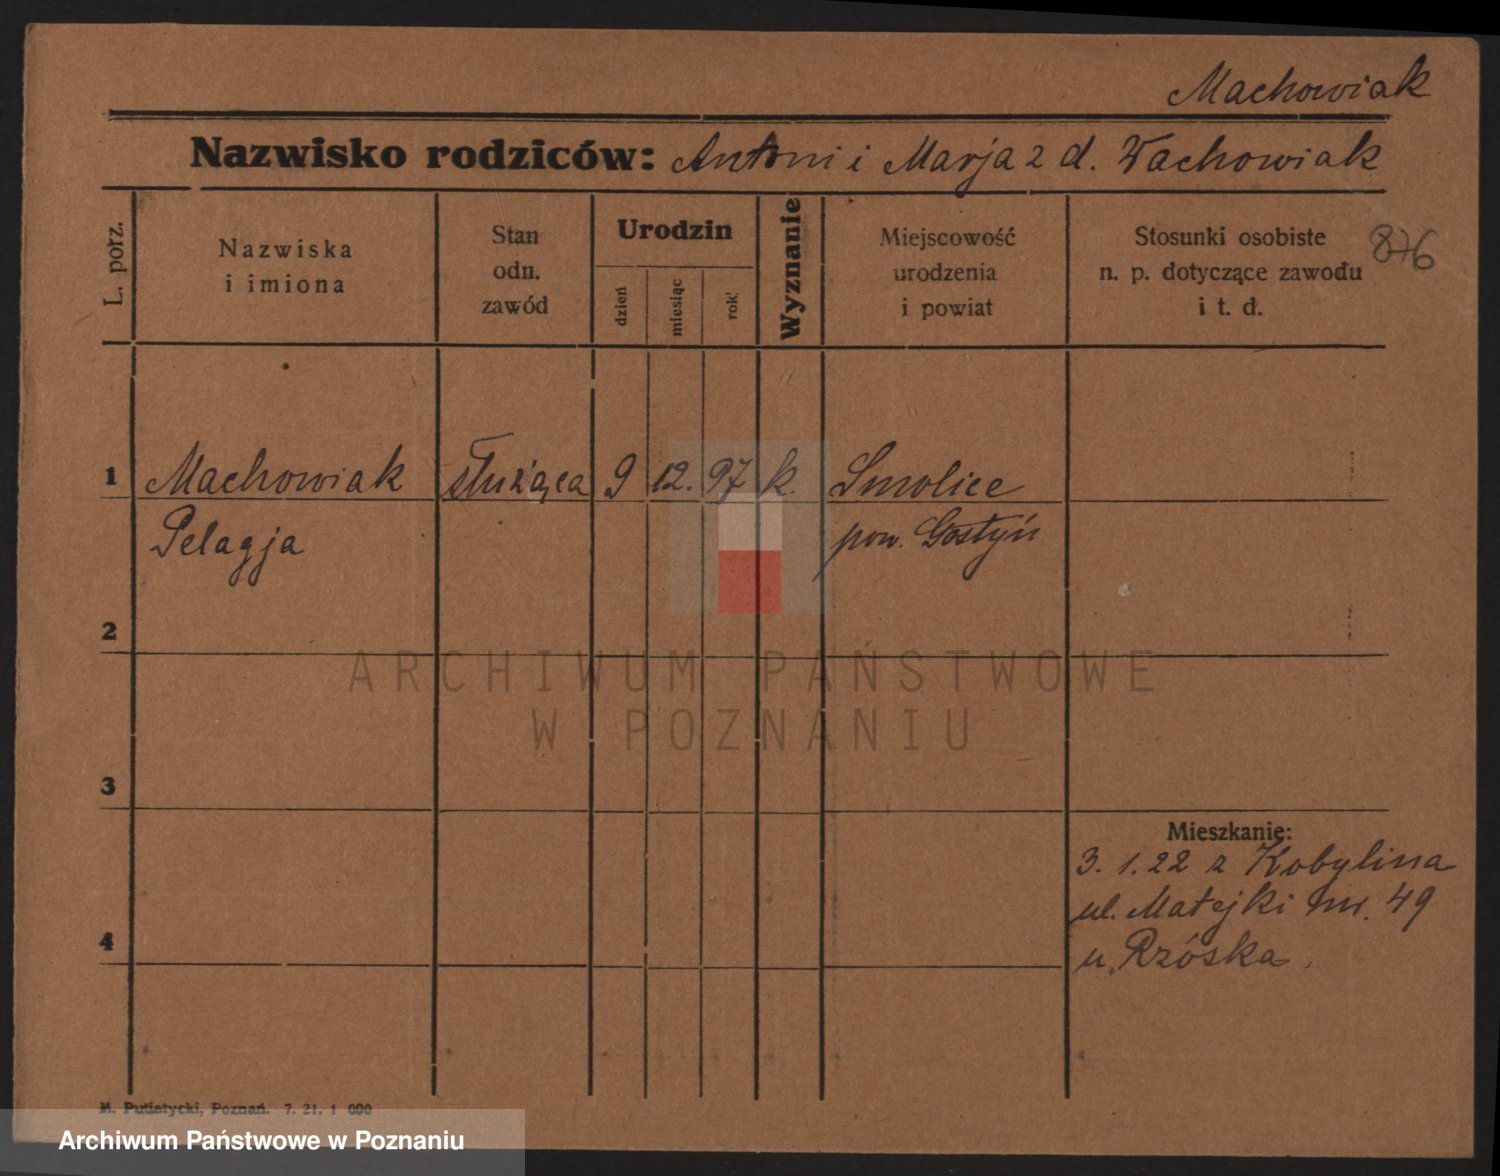 Machowiak
Nazwisko rodziców: Antoni i Marja z d. Wachowiak
876
L. porz.
Nazwiska
i imiona
Stan
odn.
zawód
Urodzin
dzień
miesiąc
rok
Wyznanie
Miejscowość
urodzenia
i powiat
Stosunki osobiste
n. p. dotyczące zawodu
i t. d.
1 Machowiak służąca 9 12. 97 k. Smolice
Pelagja pow. Gostyń
2
ARCHIWUM PAŃSTWOWE
W POZNANIU
3
Mieszkanie:
3. 1. 22 z Kobylina
ul. Matejki nr. 49
4
u. Rzóska.
M. Putiatycki, Poznań. 7. 21. 1 000
Archiwum Państwowe w Poznaniu